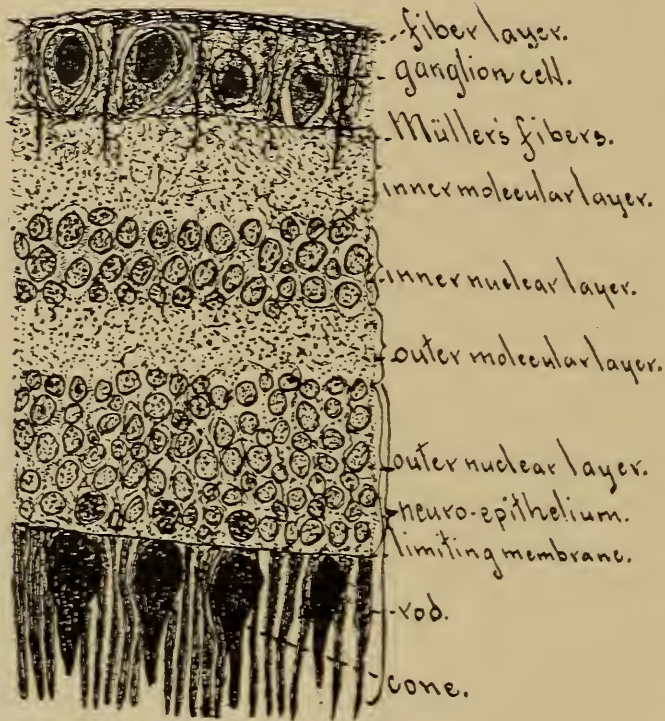 fiber layer.
ganglion cell.
Müller's fibers.
inner molecular layer.
inner nuclear layer.
outer molecular layer.
outer nuclear layer.
neuro-epithelium.
limiting membrane.
rod.
cone.